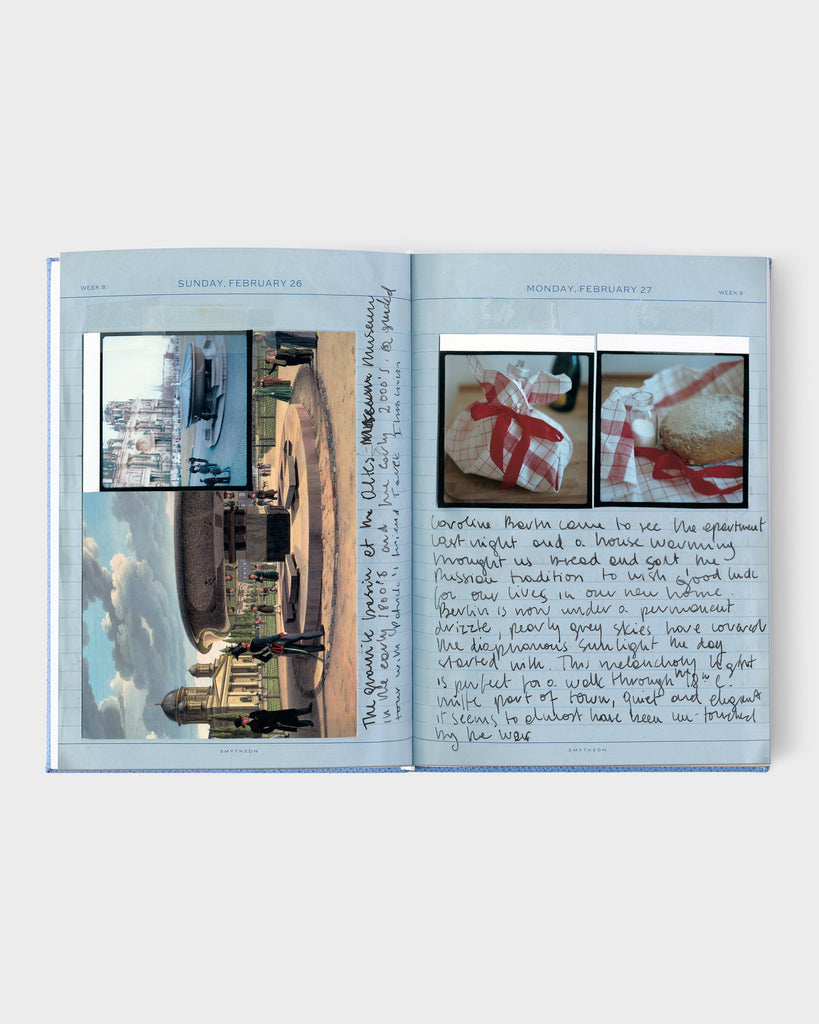 WEEK 8
SUNDAY, FEBRUARY 26
The granite basin at the Altes Museum
in the early 1800's and the early 2000's. A guided
tour with Patrick's friend
SMYTHSON
MONDAY, FEBRUARY 27
WEEK 9
Caroline Barth came to see the apartment
last night and a house warming
brought us bread and salt the
Russian tradition to wish good luck
for our lives in our new home.
Berlin is now under a permanent
drizzle, pearly grey skies have covered
the diaphanous sunlight the day
started with. This melancholy light
is perfect for a walk through the 18th C.
part of town, quiet and elegant
it seems to almost have been un-touched
by the war
SMYTHSON